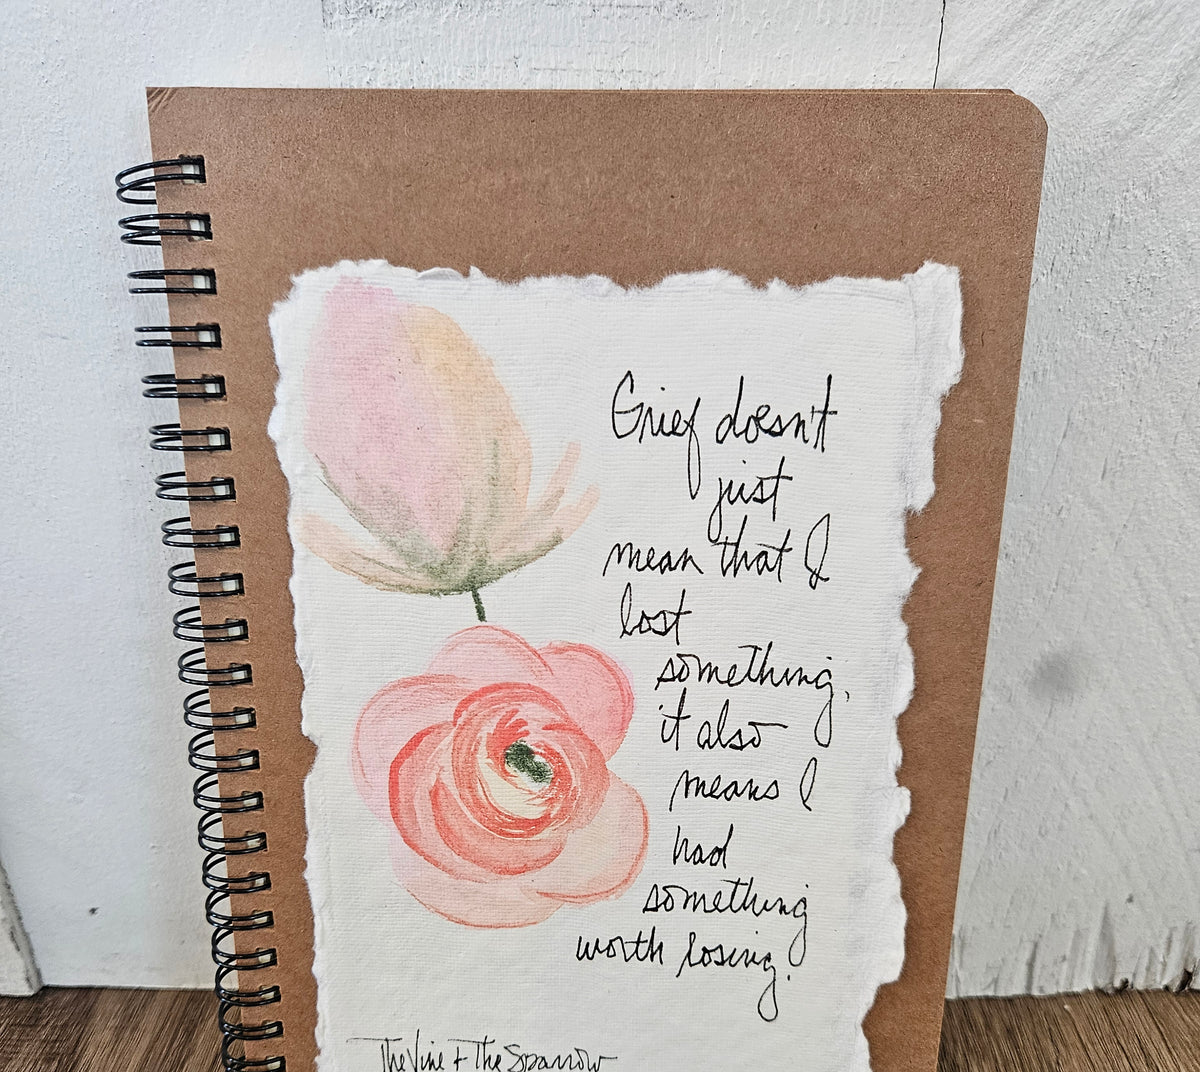 Grief doesn't
just
mean that I
lost
something,
it also
means I
had
something
worth losing.
The Vine + The Sparrow